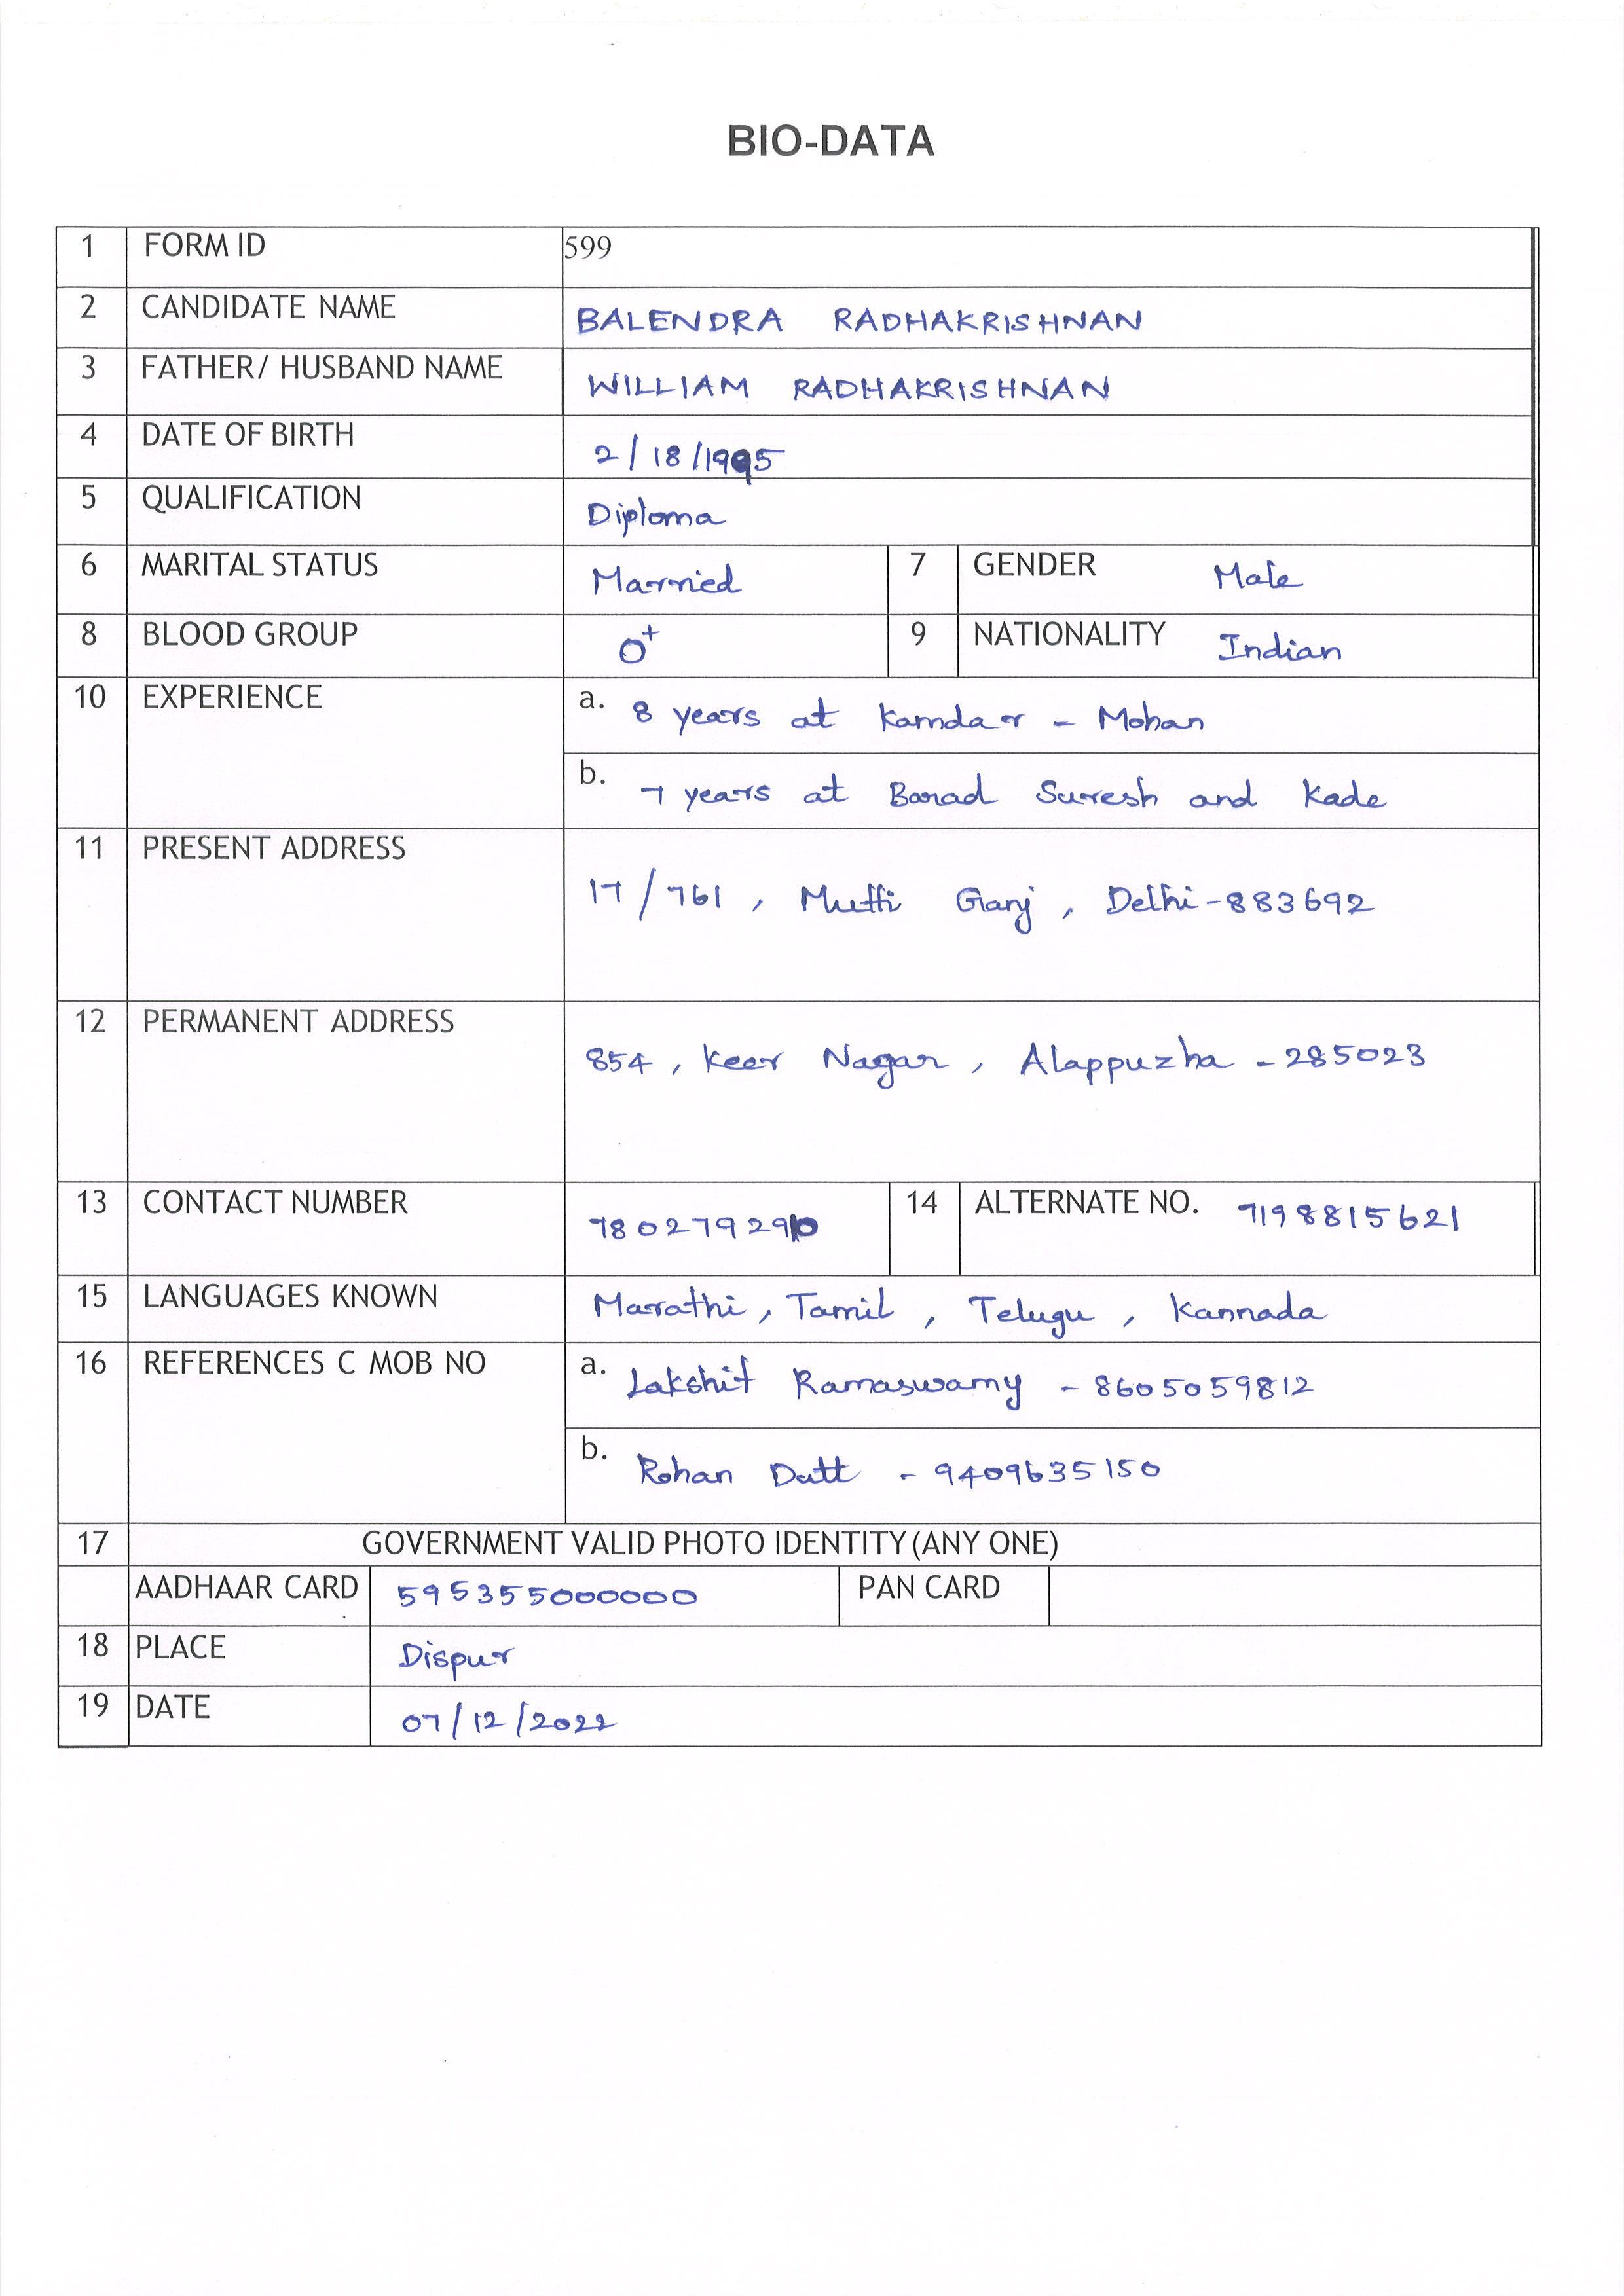 BIO-DATA
1 FORM ID 599
2 CANDIDATE NAME BALENDRA RADHAKRISHNAN
3 FATHER/ HUSBAND NAME WILLIAM RADHAKRISHNAN
4 DATE OF BIRTH 2/18/1995
5 QUALIFICATION Diploma
6 MARITAL STATUS Married 7 GENDER Male
8 BLOOD GROUP O+ 9 NATIONALITY Indian
10 EXPERIENCE a. 8 years at Kamdar - Mohan
b. 7 years at Barad Suresh and Kade
11 PRESENT ADDRESS
17/761, Mutti Ganj, Delhi-883692
12 PERMANENT ADDRESS
854, Keer Nagar, Alappuzha - 285023
13 CONTACT NUMBER 7802792910 14 ALTERNATE NO. 7198815621
15 LANGUAGES KNOWN Marathi, Tamil, Telugu, Kannada
16 REFERENCES C MOB NO a. Lakshit Ramaswamy - 8605059812
b. Rohan Datt - 9409635150
17 GOVERNMENT VALID PHOTO IDENTITY (ANY ONE)
AADHAAR CARD 595355000000 PAN CARD
18 PLACE Dispur
19 DATE 07/12/2022